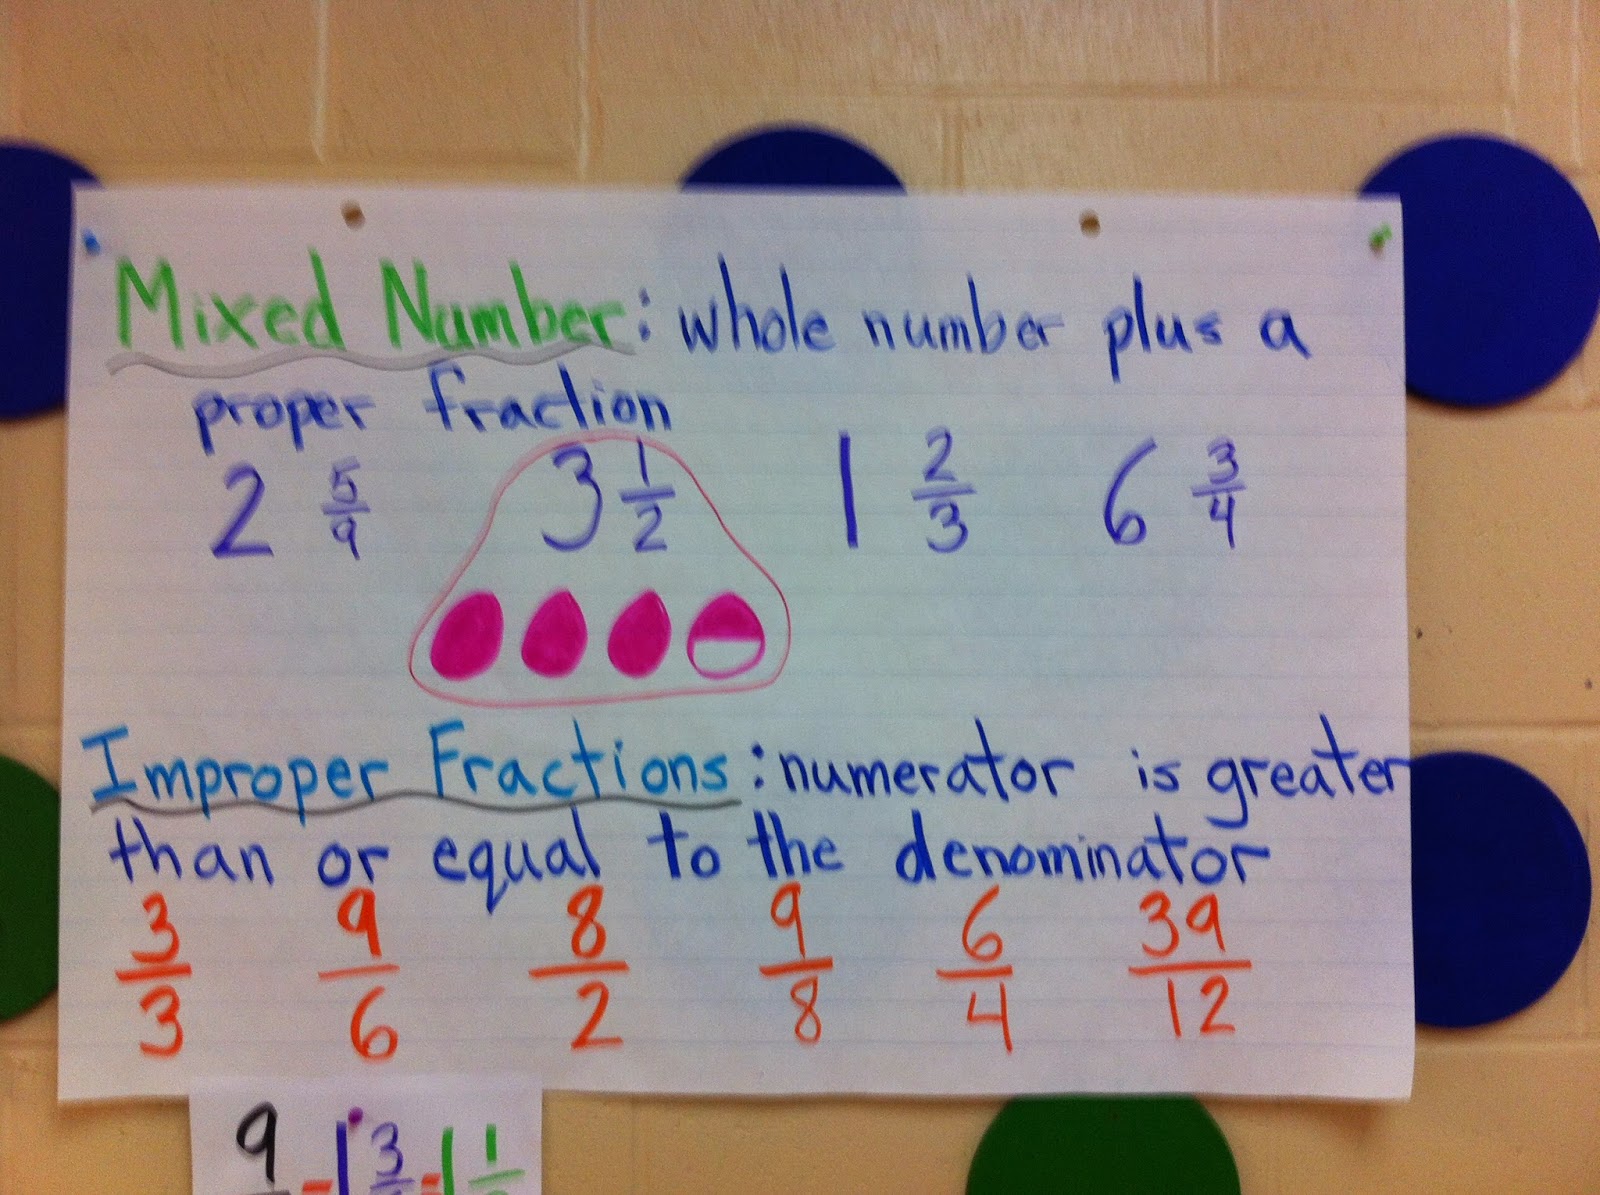 Mixed Number: whole number plus a
proper fraction
2 5/9 3 1/2 1 2/3 6 3/4
Improper Fractions: numerator is greater
than or equal to the denominator
3/3 9/6 8/2 9/8 6/4 39/12
9 = 1 3 = 1 1